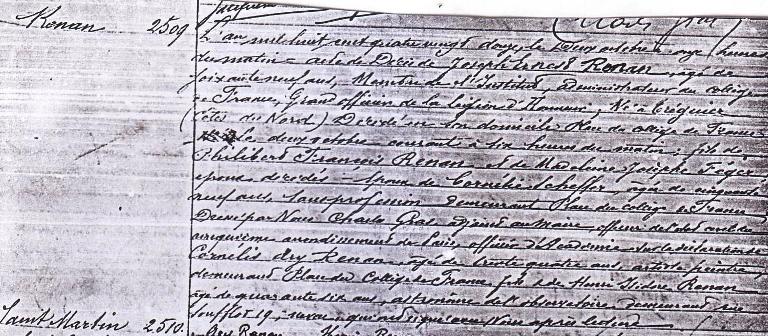 Renan 2509
L'an mil huit cent quatre vingt douze, le Deux octobre à onze heures
du matin = acte de Décès de Joseph Ernest Renan, âgé de
soixante neuf ans, Membre de l'Institut, Administrateur du collège
de France, Grand officier de la Légion d'Honneur, Né à Tréguier
(Côtes du Nord) Décédé en son domicile Place du collège de France
le deux octobre courant à six heures du matin; fils de
Philibert François Renan et de Madeleine Josèphe Feger
époux décédés = Epoux de Cornélie Scheffer, âgée de cinquante
neuf ans, sans profession demeurant Place du Collège de France
Dressé par Nous Charles Gras adjoint au Maire, officier de l'état civil du
cinquième arrondissement de Paris, officier d'Académie sur la déclaration de
Cornelis Ary Renan âgé de trente quatre ans, artiste peintre,
demeurant Place du Collège de France fils & de Henri Isidore Renan
âgé de quarante six ans, astronome de l'observatoire demeurant rue
Soufflot 19, neveu, qui ont signé avec Nous après lecture
Saint Martin 2510
Ary Renan